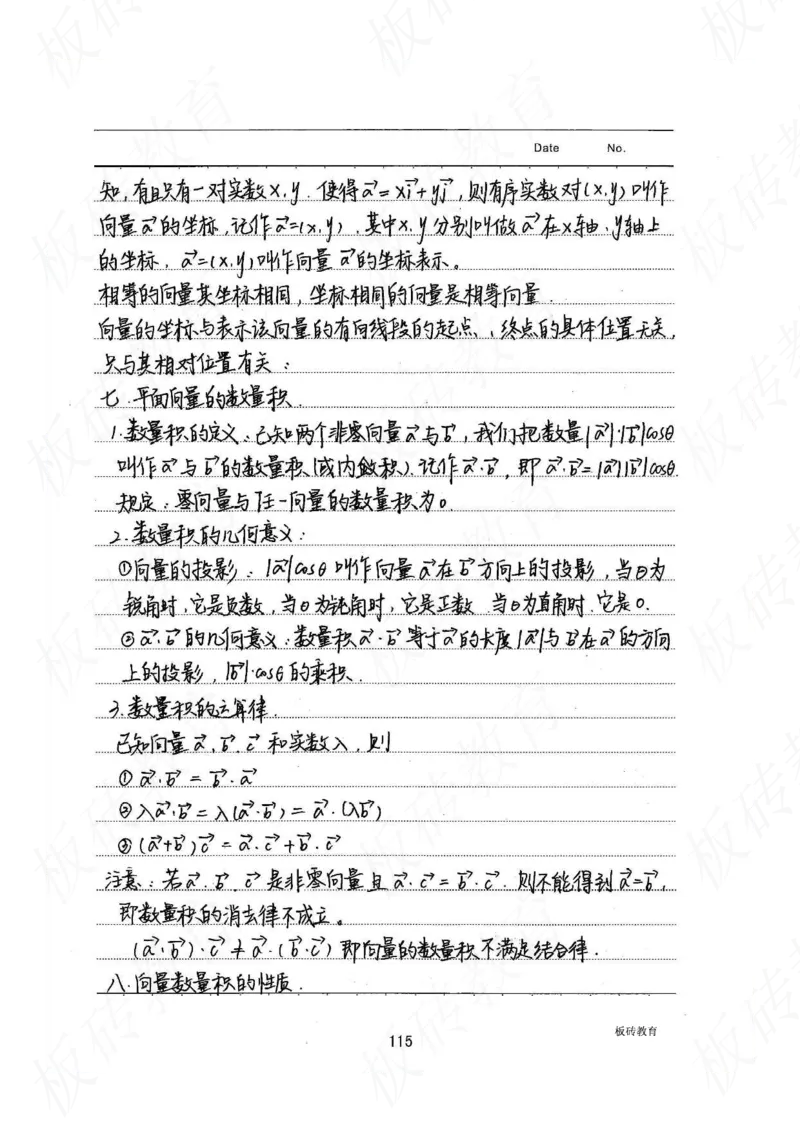 Date No.
知,有且只有一对实数x.y.使得a⃗=xi⃗+yj⃗,则有序实数对(x.y)叫作
向量a⃗的坐标,记作a⃗=(x.y).其中x.y分别叫做a⃗在x轴.y轴上
的坐标.a⃗=(x.y)叫作向量a⃗的坐标表示。
相等的向量其坐标相同,坐标相同的向量是相等向量.
向量的坐标与表示该向量的有向线段的起点、终点的具体位置无关,
只与其相对位置有关:
七.平面向量的数量积.
1.数量积的定义:已知两个非零向量a⃗与b⃗,我们把数量|a⃗|·|b⃗|cosθ
叫作a⃗与b⃗的数量积(或内敛积).记作a⃗·b⃗,即a⃗·b⃗=|a⃗||b⃗|cosθ.
规定:零向量与任一向量的数量积为0.
2.数量积的几何意义:
①向量的投影:|a⃗|cosθ叫作向量a⃗在b⃗方向上的投影,当θ为
锐角时,它是负数,当θ为钝角时,它是正数.当θ为直角时.它是0.
②a⃗.b⃗的几何意义:数量积a⃗·b⃗等于a⃗的长度|a⃗|与b⃗在a⃗的方向
上的投影,|b⃗|·cosθ的乘积.
3.数量积的运算律.
已知向量a⃗.b⃗.c⃗和实数入.则
①a⃗.b⃗=b⃗.a⃗
②入a⃗.b⃗=入(a⃗.b⃗)=a⃗.(入b⃗)
③(a⃗+b⃗)c⃗=a⃗.c⃗+b⃗.c⃗
注意:若a⃗.b⃗.c⃗是非零向量且a⃗.c⃗=b⃗.c⃗.则不能得到a⃗=b⃗,
即数量积的消去律不成立。
(a⃗·b⃗).c⃗≠a⃗.(b⃗.c⃗)即向量的数量积不满足结合律.
八.向量数量积的性质.
115
板砖教育